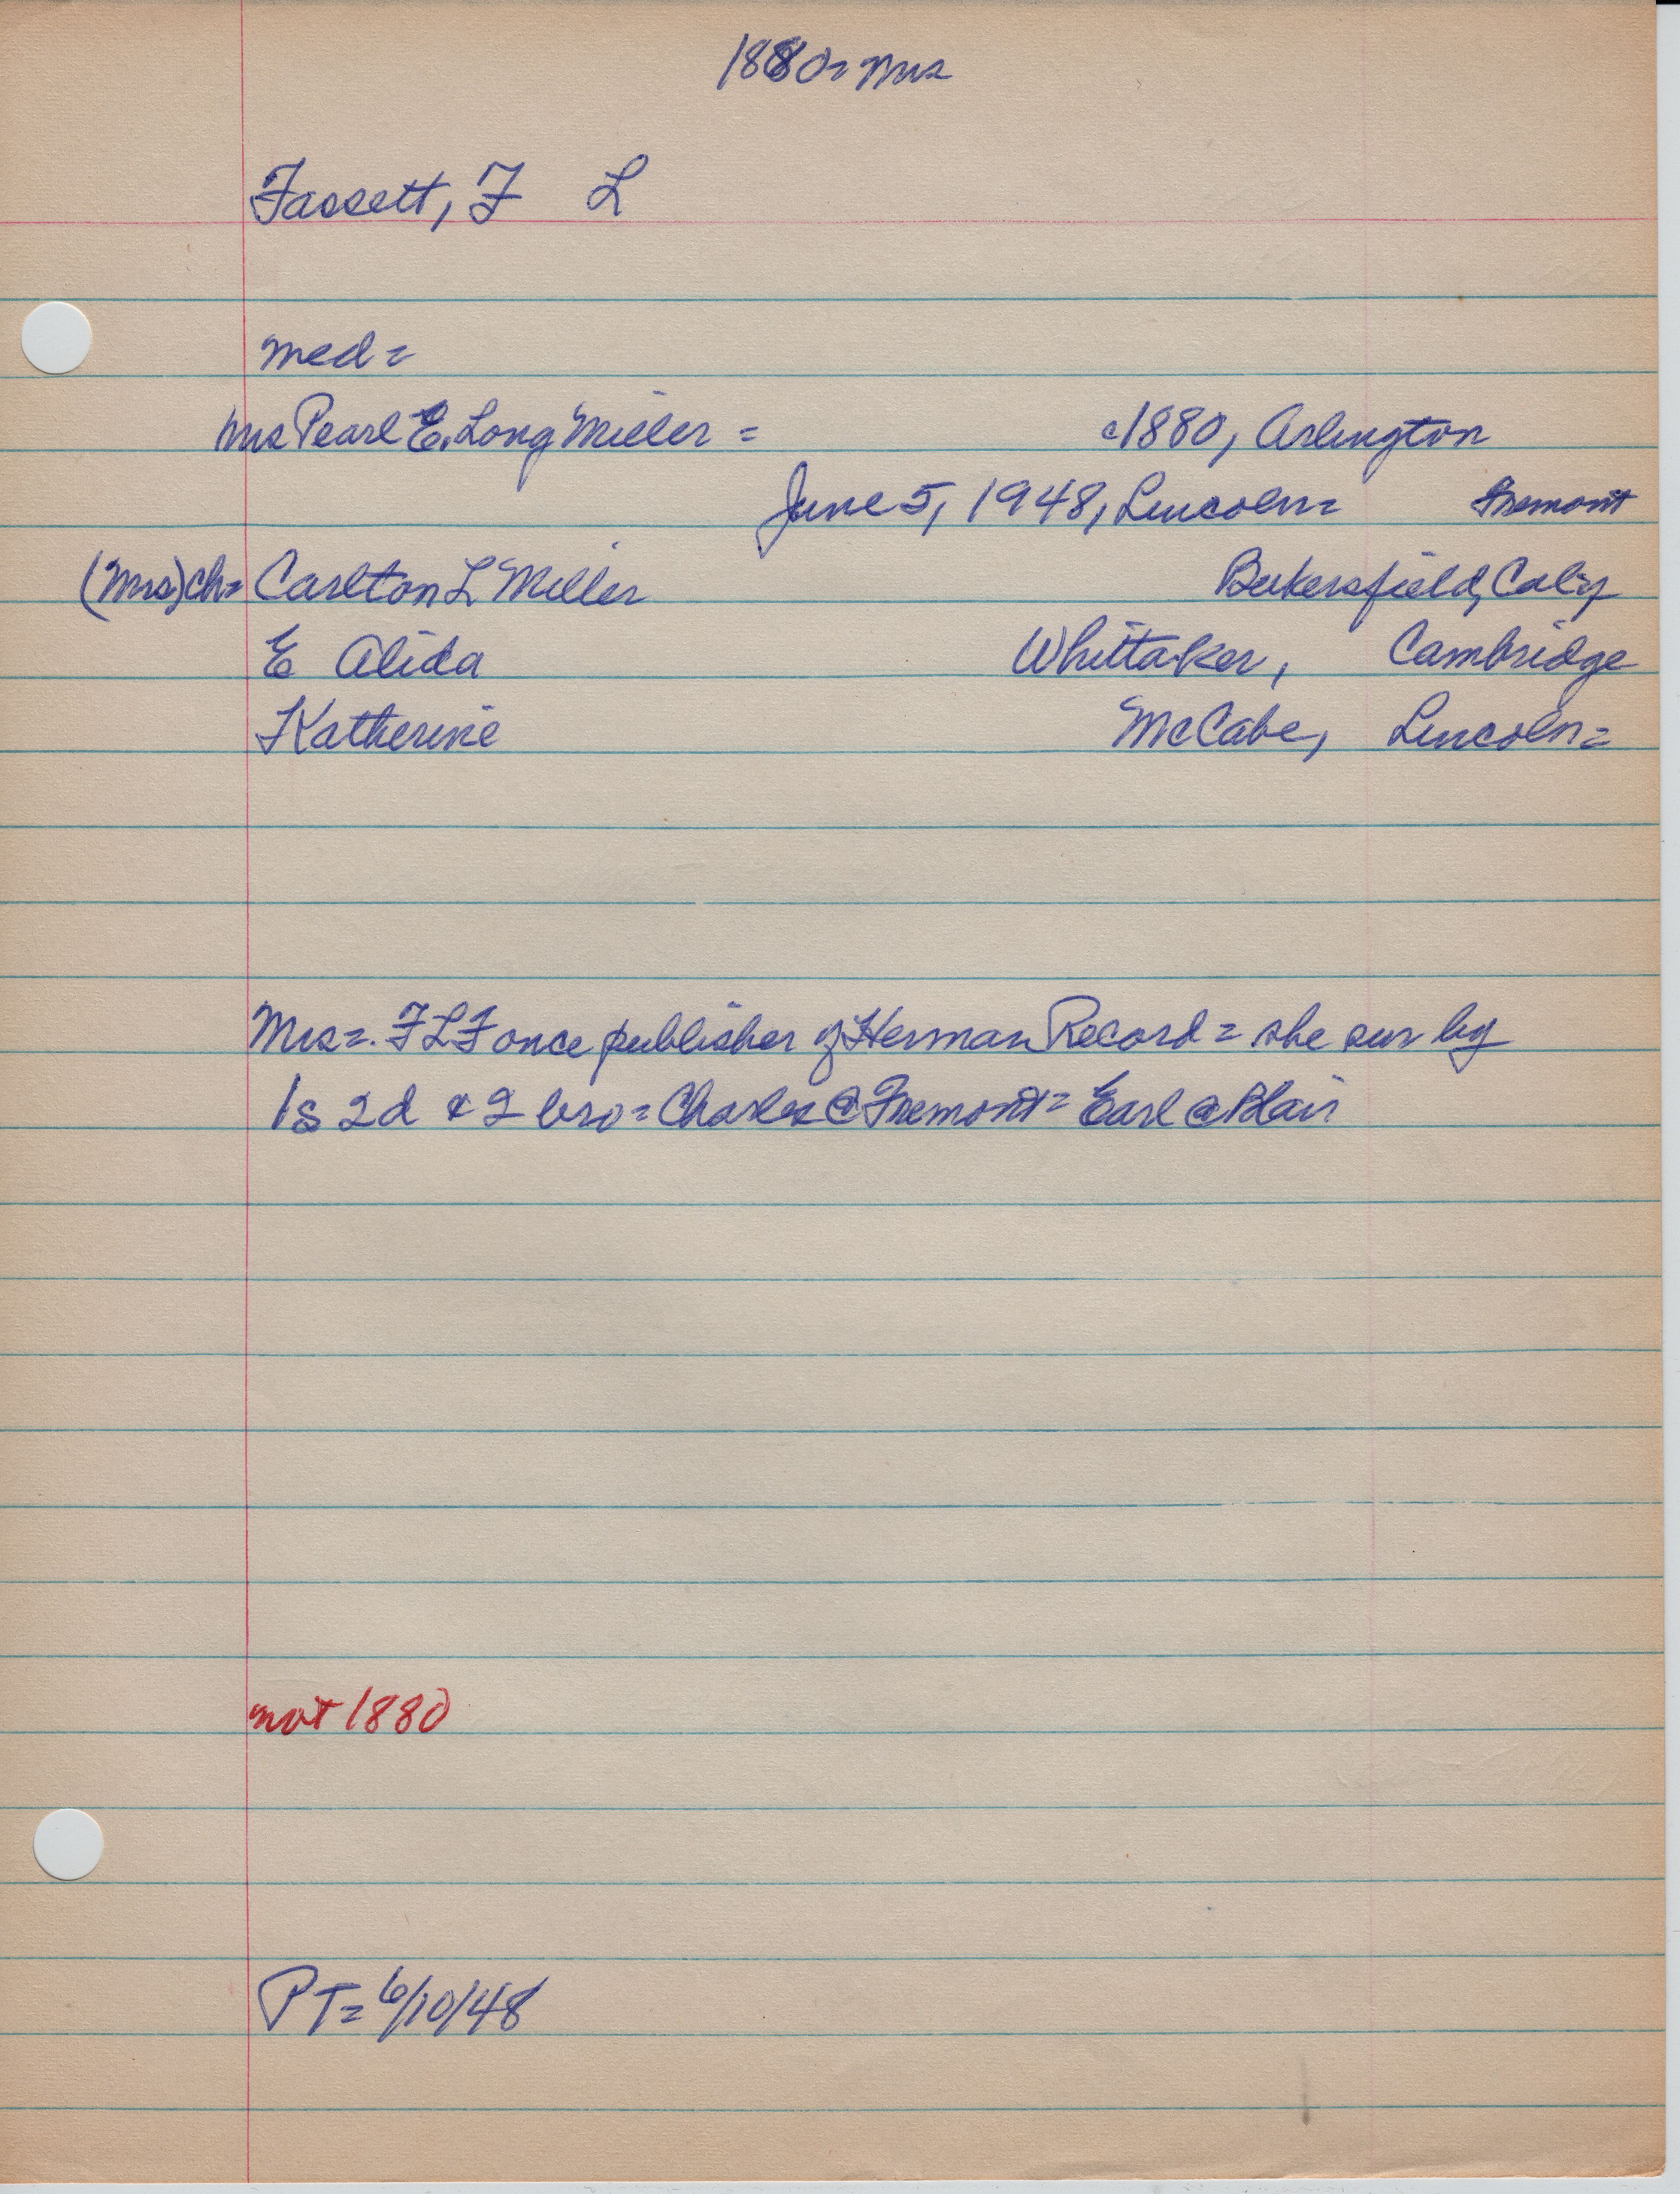 1880= Mrs
Fassett, F L
med=
Mrs Pearl E. Long Miller = c1880, Arlington
June 5, 1948, Lincoln= Fremont
(Mrs)ch= Carlton L Miller Bakersfield, Calif
E Alida Whittaker, Cambridge
Katherine McCabe, Lincoln=
Mrs=. F L F once publisher of Herman Record= she sur by
1s 2d & 2 bro= Charles @ Fremont= Earl @ Blair
not 1880
PT= 6/10/48